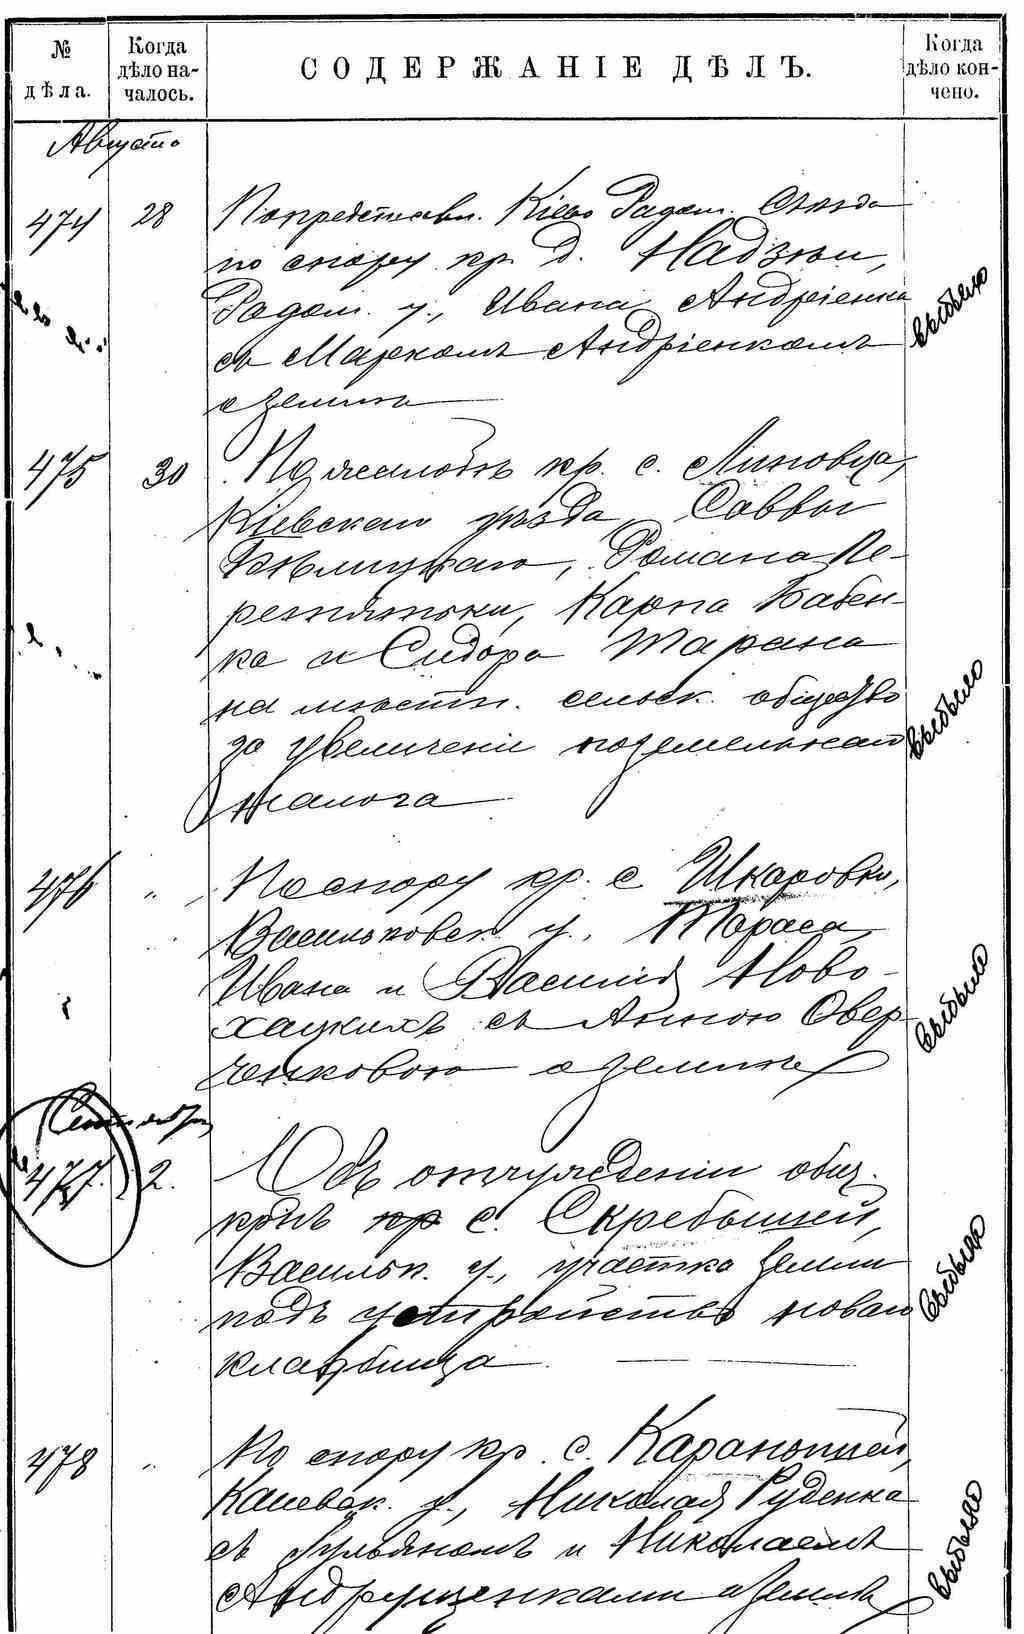 №
дѣла.
Когда
дѣло на-
чалось.
СОДЕРЖАНІЕ ДѢЛЪ.
Когда
дѣло кон-
чено.
Августъ
474 28 По представл. Кіево Радом. Съѣзда
по спору кр. д. Надзны,
Радом. у., Ивана Андріенка
съ Маркомъ Андріенкомъ
о землѣ
выбыло
475 30 По жалобѣ кр. с. Липовца,
Кіевскаго уѣзда, Саввы
Бѣлицкаго, Романа Пе-
ретятьки, Карпа Бабен-
ка и Сидора Тарана
на мѣстн. сельск. общество
за увеличеніе поземельнаго
налога
выбыло
476 " По спору кр. с Шкаровки,
Васильковск. у., Тараса,
Ивана и Василія Ново-
хацкихъ съ Анною Овер-
ченковою о землѣ
выбыло
Сентябрь
477. 2. Объ отчужденіи общ.
крнъ кр с. Скребышей,
Васильк. у., участка земли
подъ устройство новаго
кладбища
выбыло
478 " По спору кр. с. Каранышей,
Каневск. у., Николая Руденка
съ Ульяномъ и Николаемъ
Андрущенками о землѣ
выбыло